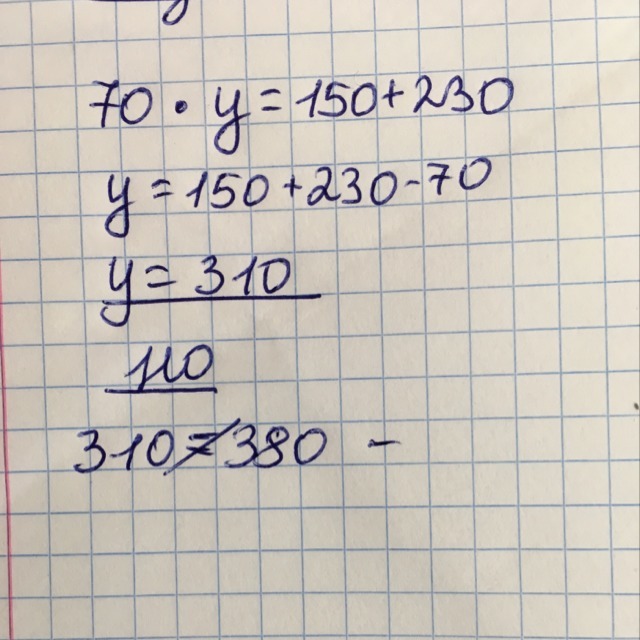 70 · y = 150 + 230
y = 150 + 230 - 70
y = 310
310 ≠ 380 -